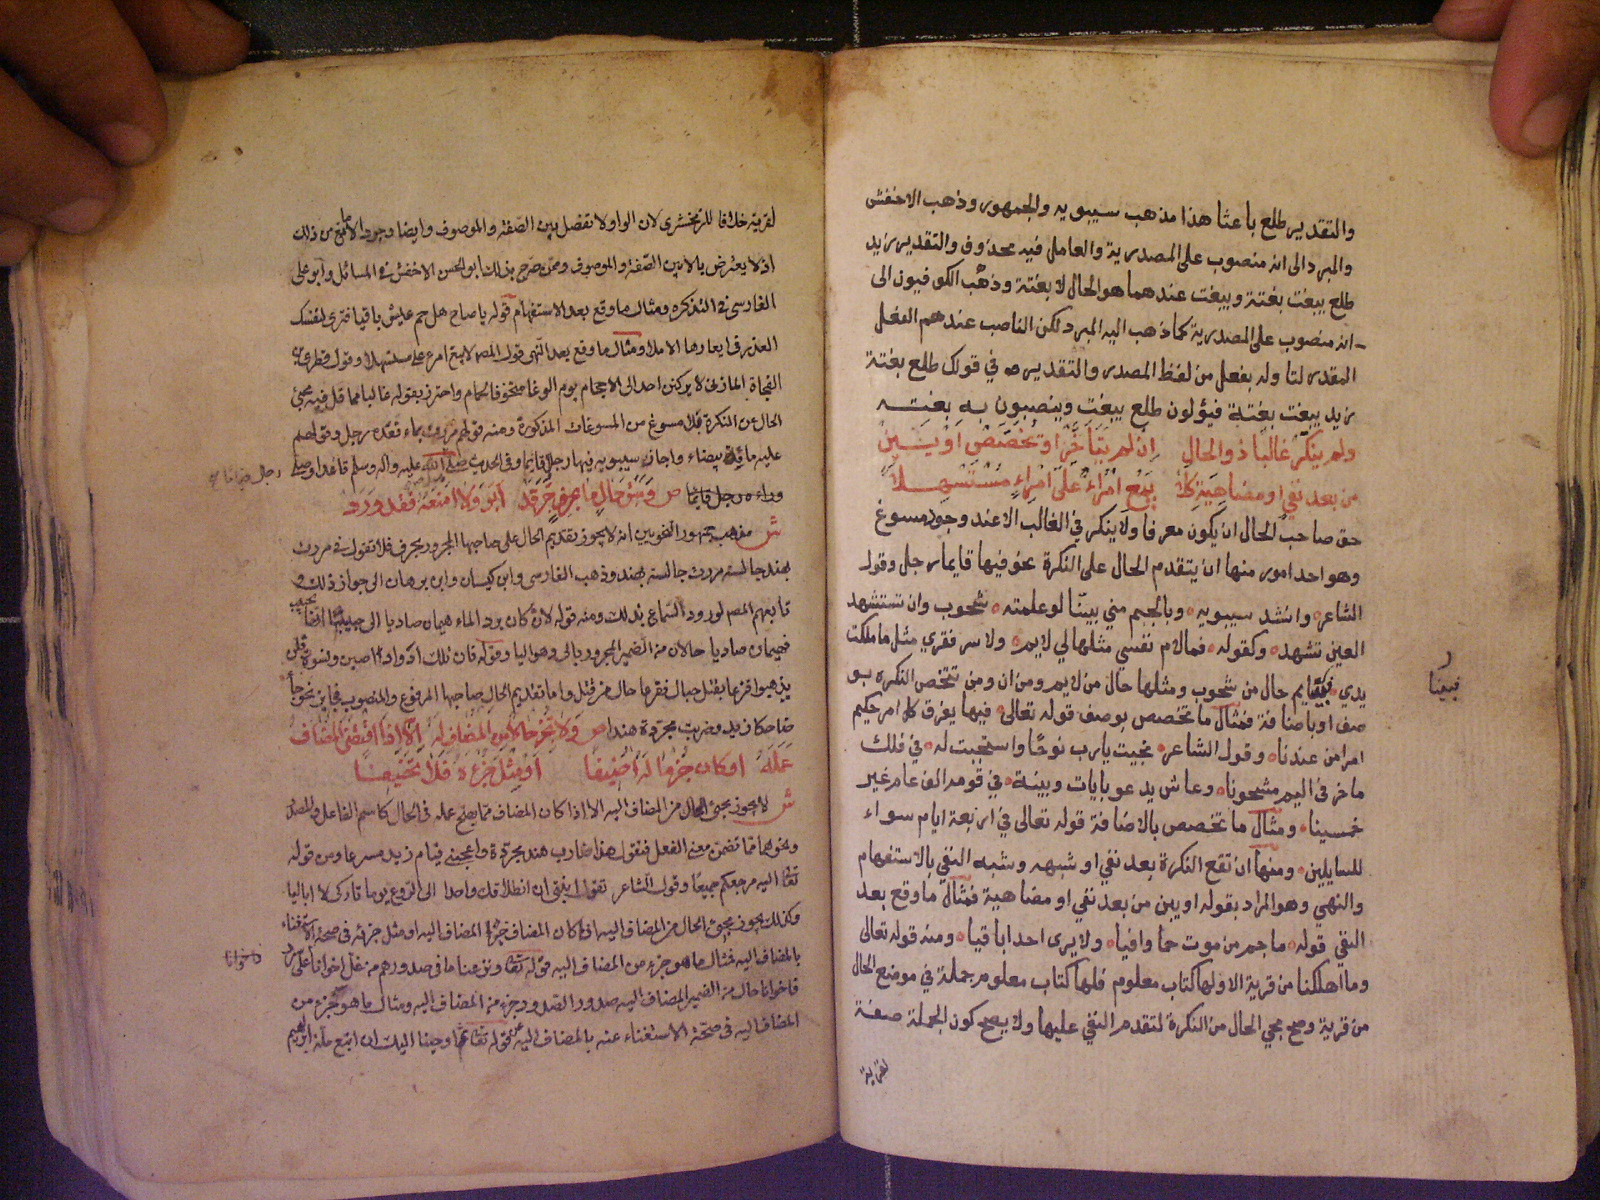 والتقدير طلع باغتا هذا مذهب سيبويه والجمهور وذهب الاخفش
والمبرد الى انه منصوب على المصدرية والعامل فيه محذوف والتقدير زيد
طلع يبغت بغتة ويبغت عندهما هو الحال لا بغتة وذهب الكوفيون الى
انه منصوب على المصدرية كما ذهب اليه المبرد لكن الناصب عندهم الفعل
المقدر لتاوله بفعل من لفظ المصدر والتقدير في قولك طلع بغتة
زيد يبغت بغتة فيؤلون طلع يبغت وينصبون به بغتة
ولم ينكر غالبا ذو الحال ان لم يتاخر او يخصص او يبن
من بعد نفي او مضاهيه كلا يبغ امرء على امرء مستسهلا
حق صاحب الحال ان يكون معرفا ولا ينكر في الغالب الا عند وجود مسوغ
وهو احد امور منها ان يتقدم الحال على النكرة نحو فيها قايما رجل وقول
الشاعر وانشد سيبويه وبالجسم مني بينا لو علمته شحوب وان تستشهد
العين تشهد وكقوله فما لام نفسي مثلها لي لايم ولا سر فقري مثل ما ملكت
يدي فقايم حال من شحوب ومثلها حال من لايم ومن ان ومن تخص النكرة بو
صف او باضافة فمثال ما تخصص بوصف قوله تعالى فيها يفرق كل امر حكيم
امرا من عندنا وقول الشاعر نجيت يا رب نوحا واستجبت له في فلك
ماخر في اليم مشحونا وعاش يدعو بايات وبينة في قومه الف عام غير
خمسينا ومثال ما تخصص بالاضافة قوله تعالى في اربعة ايام سواء
للسايلين ومنها ان تقع النكرة بعد نفي او شبهه وشبه النفي بالاستفهام
والنهي وهو المراد بقوله او يبن من بعد نفي او مضاهيه فمثال ما وقع بعد
النفي قوله ما حم من موت حما واقيا ولا يرى احد اباقيا ومنه قوله تعالى
وما اهلكنا من قرية الا ولها كتاب معلوم فلها كتاب معلوم جملة في موضع الحال
من قرية وصح مجي الحال من النكرة لتقدم النفي عليها ولا يصح كون الجملة صفة
لقرية
فبينا
لقرية خلافا للزمخشري لان الواو لا تفصل بين الصفة والموصوف وايضا وجود الا مانع من ذلك
اذ لا يعترض بالا بين الصفة والموصوف وممن صرح بذلك ابو الحسن الاخفش في المسائل وابو علي
الفارسي في التذكرة ومثال ما وقع بعد الاستفهام قوله يا صاح هل حم عيش باقيا فترى لنفسك
العذر في ابعادها الاملا ومثال ما وقع بعد النهي قول المص لا يبغ امرء على مستسهلا وقول قطري بن
الفجاة المازني لا يركنن احد الى الاحجام يوم الوغا متخوفا لحمام واحترز بقوله غالبا مما قل فيه مجئ
الحال من النكرة بلا مسوغ من المسوغات المذكورة ومنه قولهم مررت بماء قعدة رجل وقولهم
عليه مائة بيضاء واجاز سيبويه فيها رجل قايما وفي الحديث صلى الله عليه واله وسلم قاعدا وصلى
وراءه رجل قايما ص وسبق حال ما بحرف جر قد ابوا ولا امنعه فقد ورد
ش مذهب جمهور النحويين انه لا يجوز تقديم الحال على صاحبها المجرور بحرف فلا تقول في مررت
بهند جالسة مررت جالسة بهند وذهب الفارسي وابن كيسان وابن برهان الى جواز ذلك و
تابعهم المص لورود السماع بذلك ومنه قوله لان كان برد الماء هيمان صاديا الى حبيبا انها لحبيب
فهيمان صاديا حالان من الضمير المجرور بالى وهو اليا وقوله فان تلك اذواد اصبن ونسوة فلن
يذهبوا فرغا بقتل حبال ففرغا حال من قتل واما تقديم الحال صاحبها المرفوع والمنصوب فجايز نحو جاء
ضاحكا زيد وضربت مجردة هندا ص ولا تجز حالا من المضاف له الا اذا اقتضى المضاف
عمله او كان جزء ما له اضيفا او مثل جزئه فلا تحيفا
ش لا يجوز مجئ الحال من المضاف اليه الا اذا كان المضاف مما يصح عمله في الحال كاسم الفاعل والمصدر
ونحوهما مما تضمن معنى الفعل فتقول هذا ضارب هند مجردة واعجبني قيام زيد مسرعا ومن قوله
تعا اليه مرجعكم جميعا وقول الشاعر تقول ابنتي ان انطلاقك واحدا الى الروع يوما تاركي لا ابا ليا
وكذلك يجوز مجئ الحال من المضاف اليه اذا كان المضاف جزء المضاف اليه او مثل جزئه في صحة الاستغناء
بالمضاف اليه فمثال ما هو جزء من المضاف اليه قوله تعا ونزعنا ما في صدورهم من غل اخوانا على سرر
فاخوانا حال من الضمير المضاف اليه صدور الصدور جزء من المضاف اليه ومثال ما هو كجزء من
المضاف اليه في صحة الاستغناء عنه بالمضاف اليه قوله تعا ثم اوحينا اليك ان اتبع ملة ابراهيم
فاخوانا